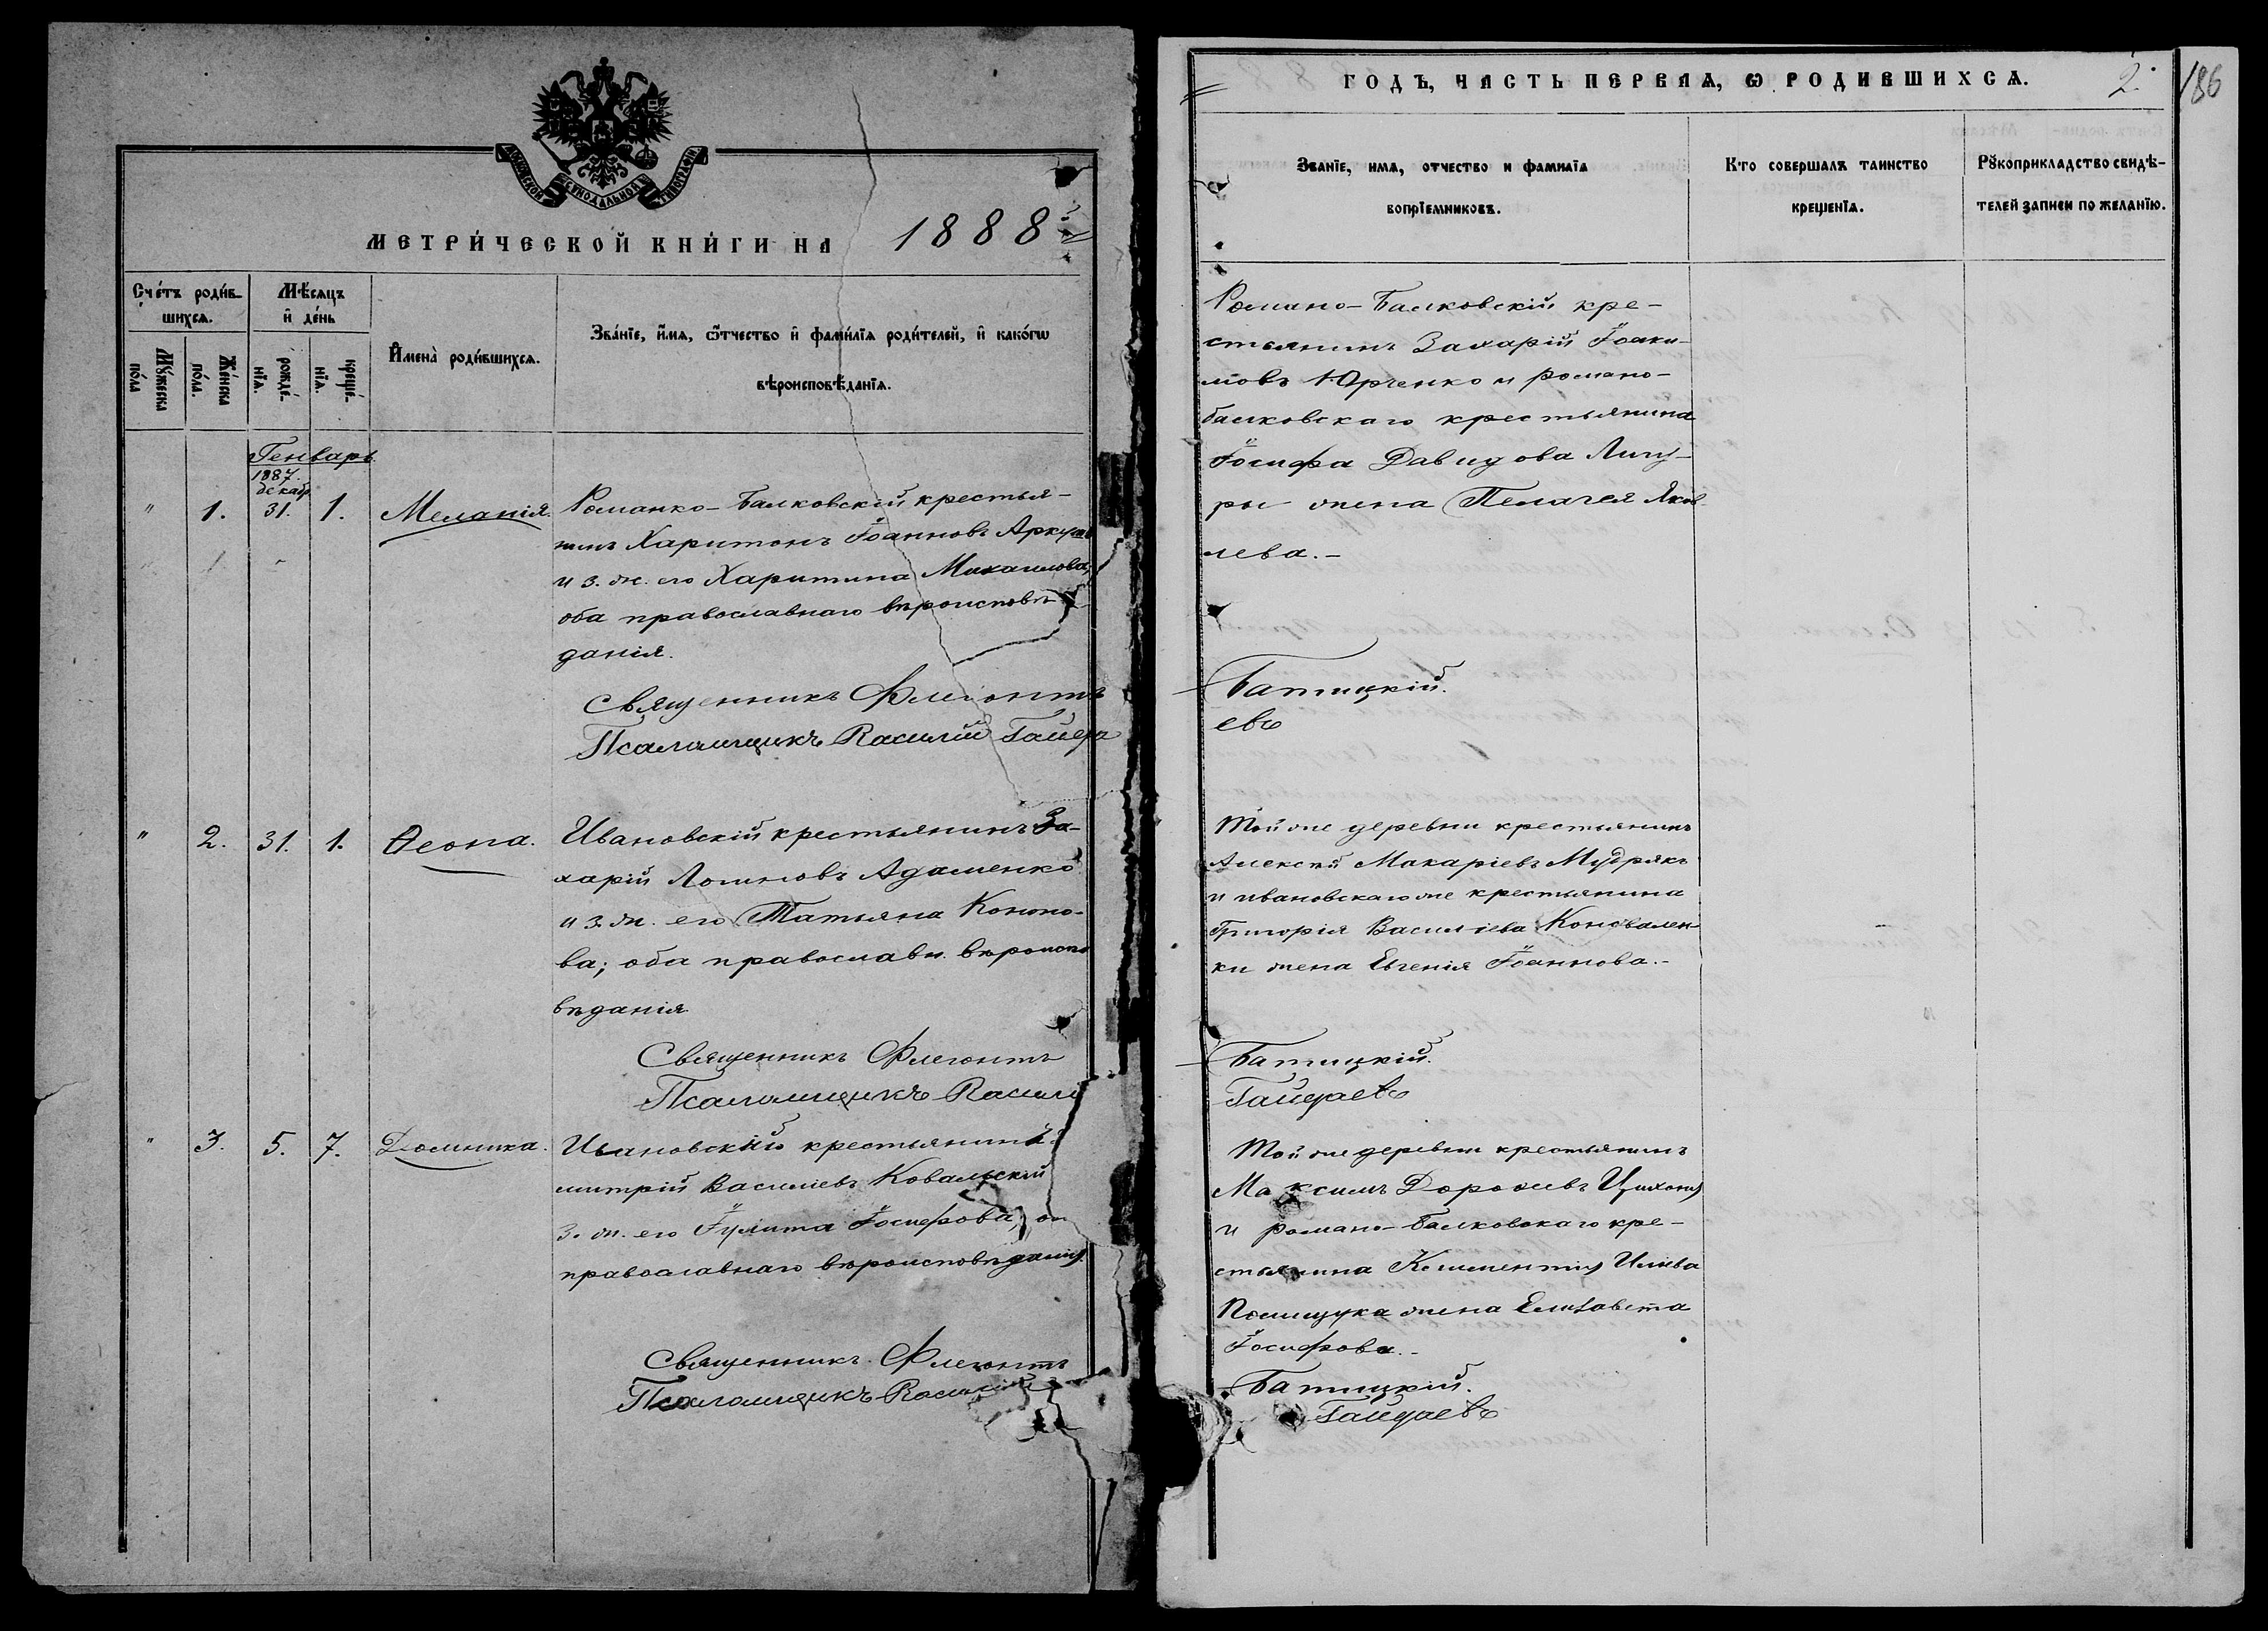 МОСКОВСКОЙ СѴНОДАЛЬНОЙ ТИПОГРАФІИ
МЕТРИ́ЧЕСКОЙ КНИ́ГИ НА 1888й
Сче́тъ роди́в-
шихсѧ.
Мѣ́сѧцъ
и҆ де́нь
Мꙋ́жеска
по́ла
Же́нска
по́ла.
рожде́-
нїѧ.
креще́-
нїѧ.
И҆мена̀ роди́вшихсѧ.
Зва́нїе, и҆́мѧ, ѻ҆́тчество и҆ фами́лїѧ роди́телей, и҆ како́гѡ
вѣроисповѣ́данїѧ.
Генварь
1887.
декабр
" 1. 31. 1. Меланія. Романко-Балковскій крестья-
нинъ Харитонъ Іоанновъ
и з. ж. его Харитина Михаилова,
оба православнаго вѣроисповѣ-
данія.
Священникъ Флегонтъ
Псаломщикъ Василій Гайда
" 2. 31. 1. Ѳеона. Ивановскій крестьянинъ За-
харій Логиновъ Адаменко
и з. ж. его Татьяна Кононо-
ва; оба православн. вѣроиспо
вѣданія
Священникъ Флегонтъ
Псаломщикъ Васили
" 3. 5. 7. Домника. Ивановскій крестьянинъ
митрій Василіевъ Ковальскій
з. ж. его Іулита Іосифова,
православнаго вѣроисповѣданія.
Священникъ Флегонтъ
Псаломщикъ Василій
ГОДЪ, ЧАСТЬ ПЕРВАѦ, Ѡ РОДИВШИХСѦ. 2. 186
Званїе, имѧ, отчество и фамилїѧ
воспрїемниковъ.
Кто совершалъ таинство
крещенїѧ.
Рꙋкоприкладство свидѣ-
телей записи по желанїю.
Романо-Балковскій кре-
стьянинъ Захарій Іоаки-
мовъ Юрченко и романо-
балковскаго крестьянина
Іосифа Давидова Лигу-
ры жена Пелагея Яков
лева.-
Батицкій.
евъ
Той же деревни крестьянинъ
Алексѣй Макаріевъ Мудракъ
и ивановскаго же крестьянина
Григорія Василіева Коновален
ки жена Евгенія Іоаннова.-
Батицкій.
Гайдаевъ
Той же деревни крестьянинъ
Максимъ Дорофеевъ
и романо-Балковскаго кре-
стьянина Климентія Иліева
Полищука жена Елисавета
Іосифова.-
Батицкій.
Гайдаевъ